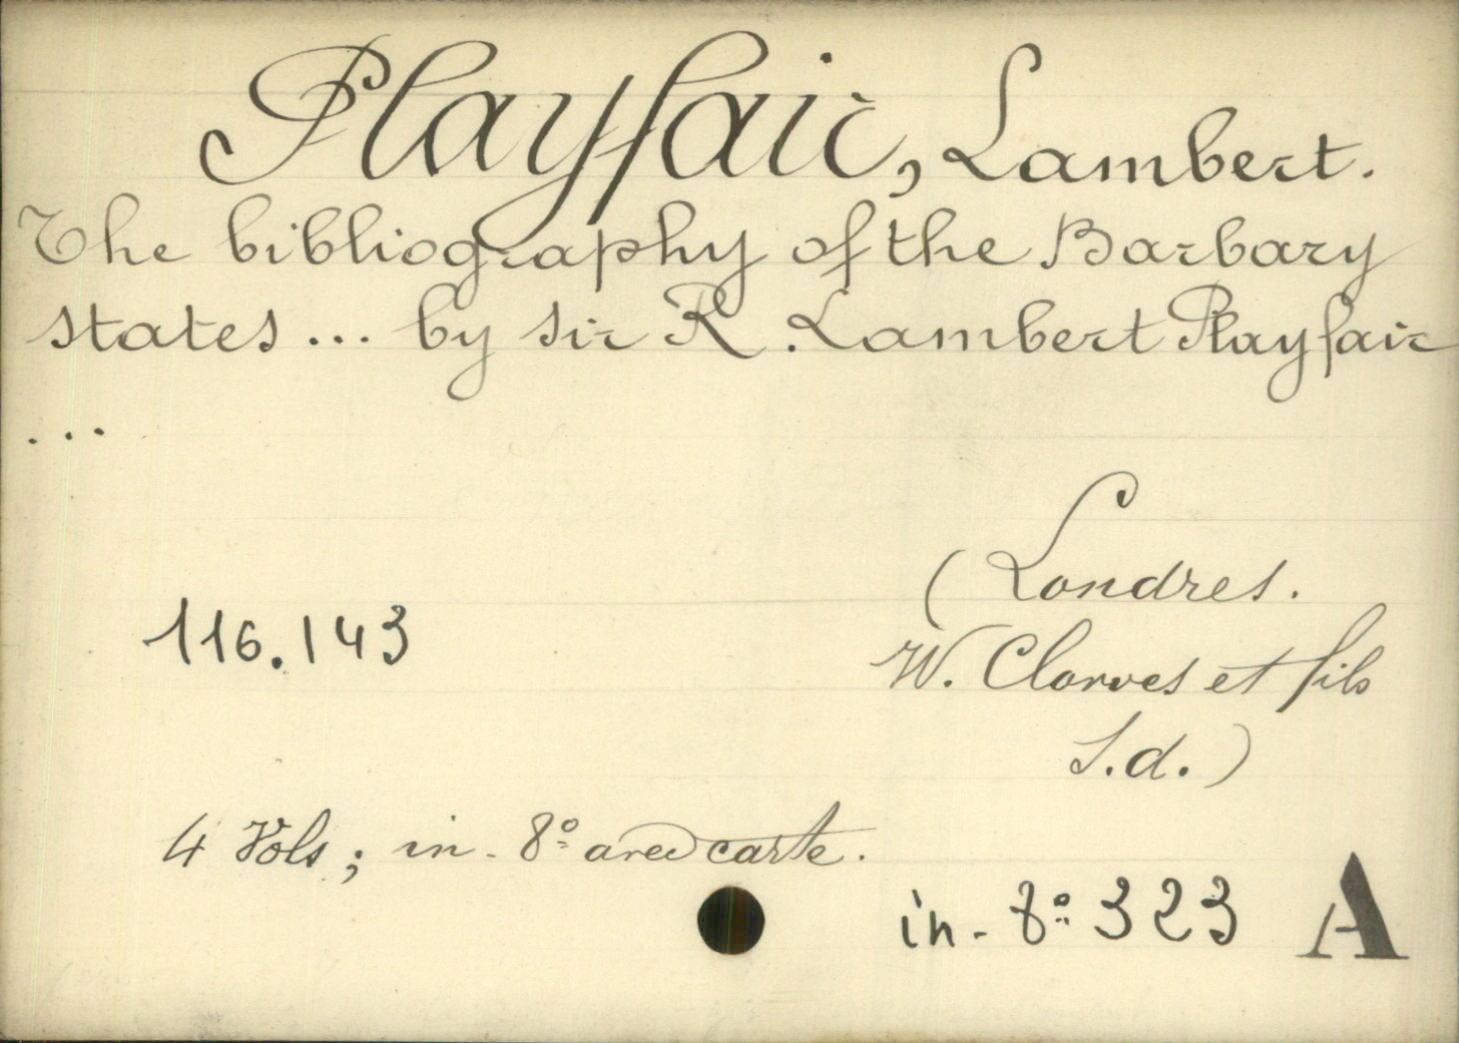 Playfair, Lambert.
The bibliography of the Barbary
states ... by sir R. Lambert Playfair
...
(Londres.
116.143
W. Clowes et fils
S.d.)
4 Vols; in-8° avec carte.
in-8° 323 A